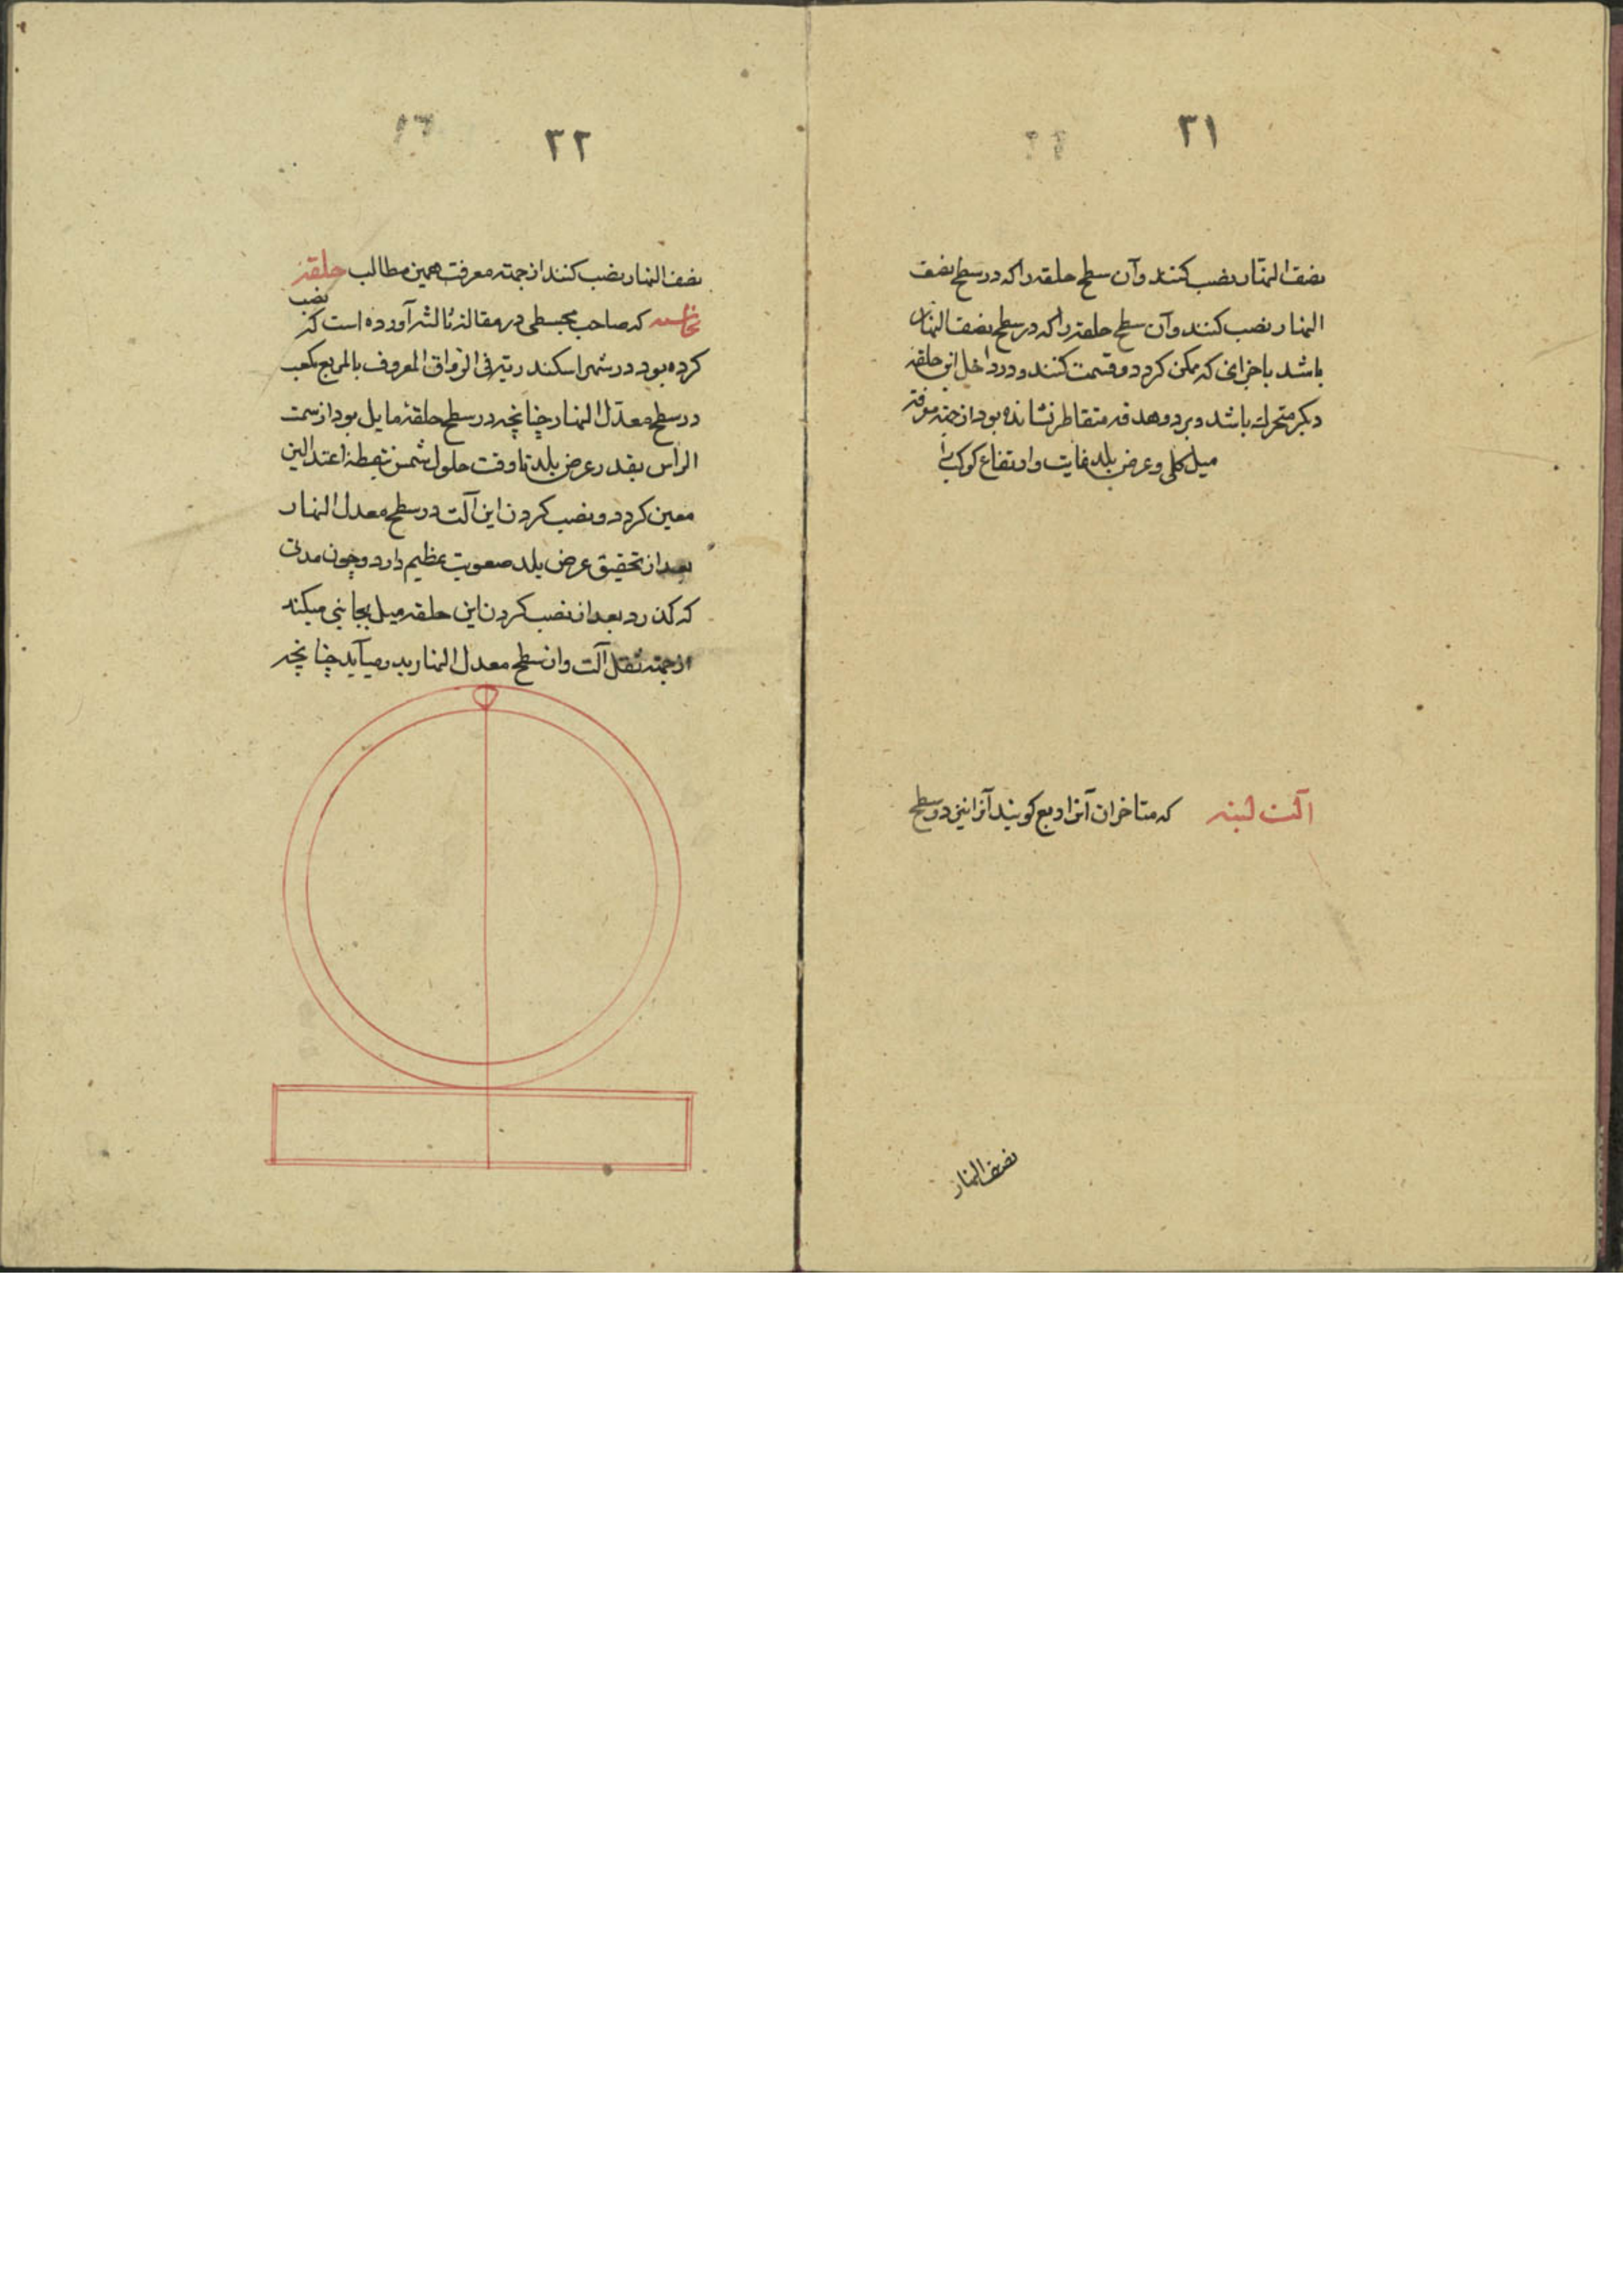 ۳۱
نصف النهار نصب کنند وآن سطح حلقه را که در سطح نصف
النهار نصب کنند وآن سطح حلقه را که در سطح نصف النهار
باشد باجزائی که ممکن کردد و قسمت کنند و در داخل این حلقه
دیکر متحرک باشد و برد و هدفه متقاطر نشانده بود از جهته معرفته
میل کلی وعرض بلد غایت وارتفاع کواکب را
آلت لبنه که متاخران آنرا ربع کویند آنرا نیز در سطح
نصف النهار
۳۲
نصف النهار نصب کنند از جهته معرفت همین مطالب حلقه
نحاسیه که صاحب مجسطی در مقاله ثالثه آورده است که نصب
کرده بود در شهر اسکندریه فی الرواق المعروف بالمربع مکعب
در سطح معدّل النهار چنانچه در سطح حلقه مایل بود از سمت
الرأس بقدر عرض بلد تا وقت حلول شمس بنقطه اعتدالین
معین کردد و نصب کردن این آلت در سطح معدل النهار
بعد از تحقیق عرض بلد صعوبت عظیم دارد و چون مدتی
که کذرد بعد از نصب کردن این حلقه میل بجانبی میکند
از جهته ثقل آلت واز سطح معدل النهار بدر میآید چنانچه